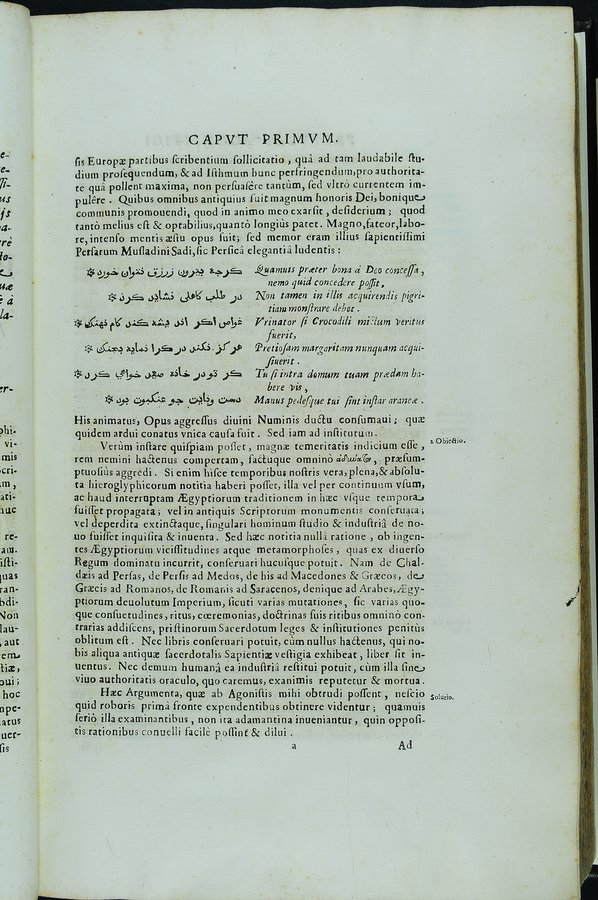 CAPVT PRIMVM.
sis Europæ partibus scribentium sollicitatio, quâ ad tam laudabile stu-
dium prosequendum, & ad Isthmum hunc perfringendum, pro authorita-
te quâ pollent maxima, non persuasêre tantùm, sed vltrò currentem im-
pulêre. Quibus omnibus antiquius fuit magnum honoris Dei, bonique
communis promouendi, quod in animo meo exarsit, desiderium; quod
tantò melius est & optabilius, quantò longiùs patet. Magno, fateor, labo-
re, intenso mentis æstu opus fuit; sed memor eram illius sapientissimi
Persarum Musladini Sadi, sic Persicâ elegantiâ ludentis:
كرچه بيرون زرزق نتوان خورد Quamuis præter bona à Deo concessa,
nemo quid concedere possit,
در طلب كاهلى نشايد كرد Non tamen in illis acquirendis pigri-
tiam monstrare debet.
غواص اكر انديشه كند كام نهنك Vrinator si Crocodili mictum veritus
fuerit,
هركز نكند در كرا نمايه بچنك Pretiosam margaritam nunquam acqui-
siuerit.
كر تو در خانه صيد خواهي كرد Tu si intra domum tuam prædam ha-
bere vis,
دست وپايت چو عنكبوت بود Manus pedesque tui sint instar araneæ.
His animatus, Opus aggressus diuini Numinis ductu consumaui; quæ
quidem ardui conatus vnica causa fuit. Sed iam ad institutum.
Verùm instare quispiam posset, magnæ temeritatis indicium esse,
rem nemini hactenus compertam, factuque omninò præsum-
ptuosiùs aggredi. Si enim hisce temporibus nostris vera, plena, & absolu-
ta hieroglyphicorum notitia haberi posset, illa vel per continuum vsum,
ac haud interruptam Ægyptiorum traditionem in hæc vsque tempora
fuisset propagata; vel in antiquis Scriptorum monumentis conseruata;
vel deperdita extinctaque, singulari hominum studio & industriâ de no-
uo fuisset inquisita & inuenta. Sed hæc notitia nullâ ratione, ob ingen-
tes Ægyptiorum vicissitudines atque metamorphoses, quas ex diuerso
Regum dominatu incurrit, conseruari hucusque potuit. Nam de Chal-
dæis ad Persas, de Persis ad Medos, de his ad Macedones & Græcos, de
Græcis ad Romanos, de Romanis ad Saracenos, denique ad Arabes, Ægy-
ptiorum deuolutum Imperium, sicuti varias mutationes, sic varias quo-
que consuetudines, ritus, cœremonias, doctrinas suis ritibus omninò con-
trarias addiscens, pristinorum Sacerdotum leges & institutiones penitùs
oblitum est. Nec libris conseruari potuit, cùm nullus hactenus, qui no-
bis aliqua antiquæ sacerdotalis Sapientiæ vestigia exhibeat, liber sit in-
uentus. Nec demum humanâ ea industriâ restitui potuit, cùm illa sine
viuo authoritatis oraculo, quo caremus, exanimis reputetur & mortua.
Hæc Argumenta, quæ ab Agonistis mihi obtrudi possent, nescio
quid roboris primâ fronte expendentibus obtinere videntur; quamuis
seriò illa examinantibus, non ita adamantina inueniantur, quin opposi-
tis rationibus conuelli facilè possint & dilui.
a Ad
1. Obiectio.
Solutio.